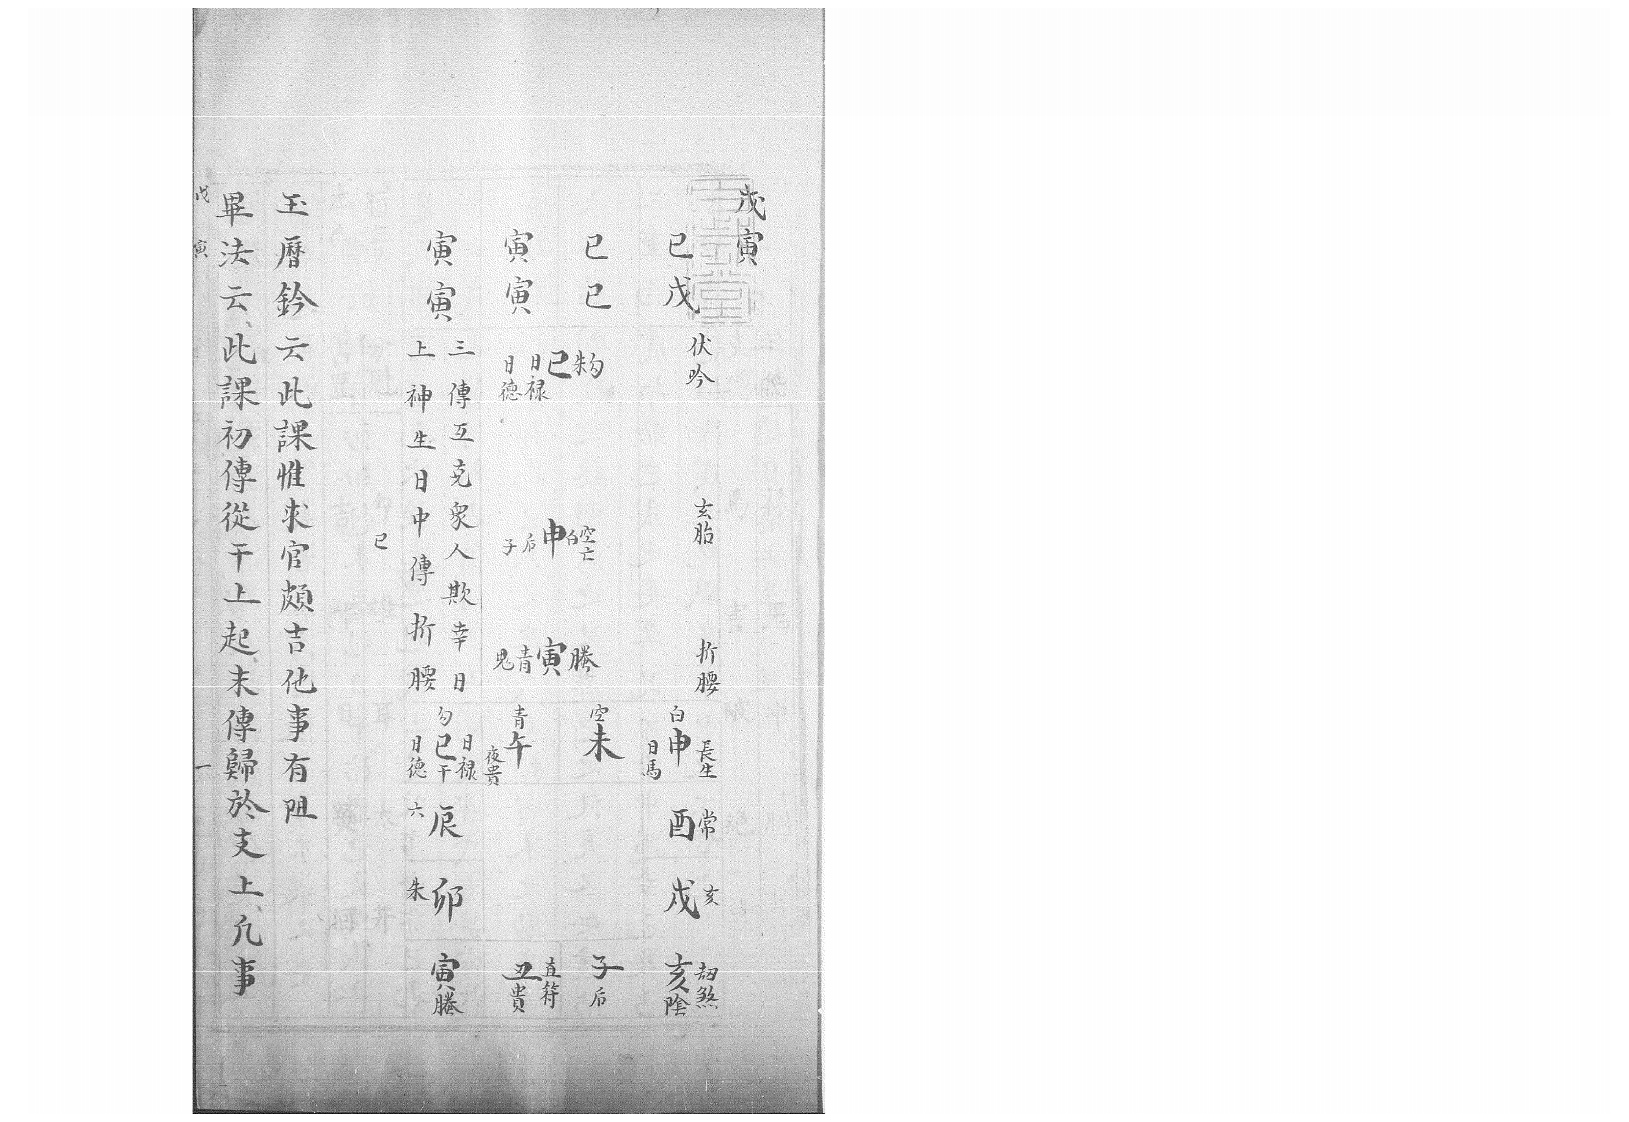 戊寅
伏吟
玄胎
折腰
巳戊
巳巳
寅寅
寅寅
朱勾
巳
日禄
日德
空亡
白
申
后
子
螣
寅
青
鬼
三傳互克衆人欺幸日
上神生日中傳折腰
長生
白
申
日馬
空
未
青
午
夜貴
日禄
勾
巳
干
日德
常
酉
六
辰
亥
戌
朱
卯
劫煞
亥
陰
子
后
直符
丑
貴
寅
螣
巳
玉曆鈐云此課惟求官頗吉他事有阻
畢法云此課初傳從干上起末傳歸於支上凡事
戊寅
一